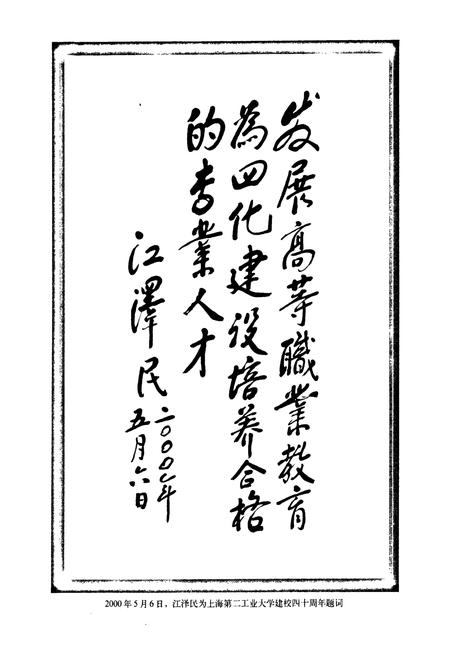 发展高等職業教育
為四化建设培养合格
的专業人才
江澤民
二〇〇〇年
五月六日
2000 年 5 月 6 日，江泽民为上海第二工业大学建校四十周年题词